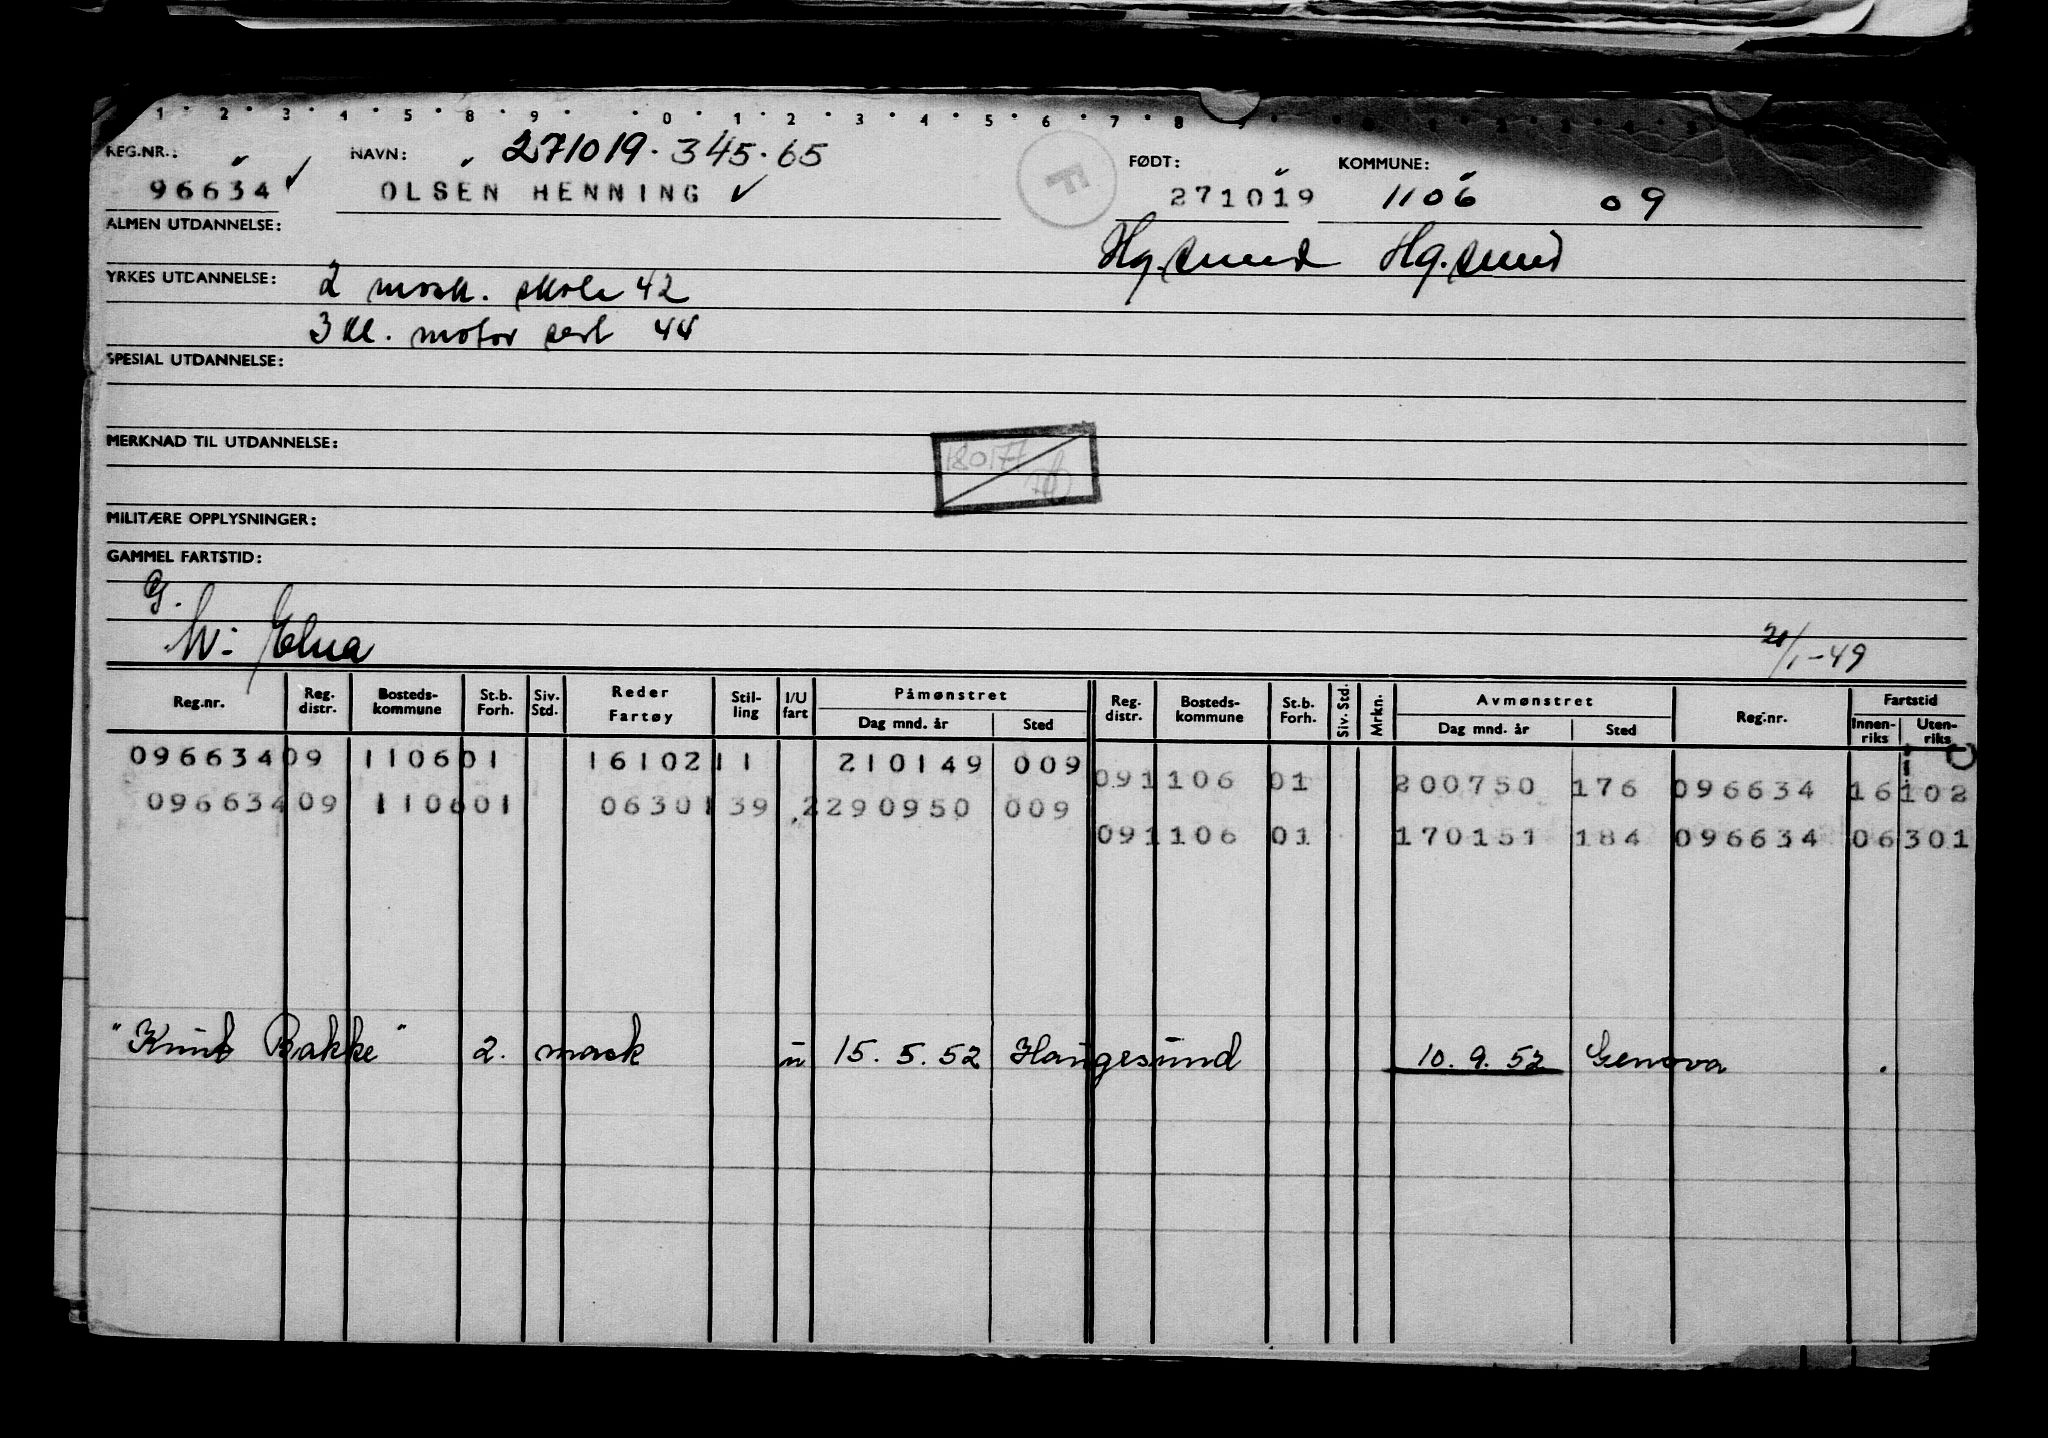 1 2 3 4 5 8 9 0 1 2 3 4 5 6 7 8
REG.NR.: NAVN: 271019.345.65 FØDT: KOMMUNE:
96634 ✓ OLSEN HENNING ✓ F 271019 1106 09
ALMEN UTDANNELSE: Hg.sund Hg.sund
YRKES UTDANNELSE: 2 mask. skole 42
3 kl. motor sert 44
SPESIAL UTDANNELSE:
MERKNAD TIL UTDANNELSE:
180177
MILITÆRE OPPLYSNINGER:
GAMMEL FARTSTID:
G.
Elna 21/1-49
Reg.nr. Reg. distr. Bosteds-kommune St.b. Forh. Siv. Std. Reder Fartøy Stil-ling I/U fart Påmønstret Dag mnd. år Sted Reg. distr. Bosteds-kommune St.b. Forh. Siv. Std. Mrkn. Avmønstret Dag mnd. år Sted Reg.nr. Fartstid Innen-riks Uten-riks
096634 09 1106 01 16102 11 210149 009
091106 01 200750 176 096634 16102
096634 09 1106 01 06301 39 2 290950 009
091106 01 170151 184 096634 06301
"Knut Bakke" 2. mask u 15. 5. 52 Haugesund 10. 9. 52 Genova